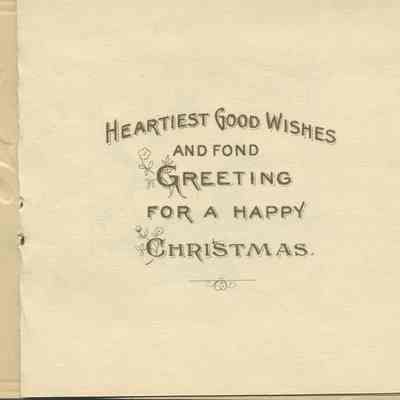 HEARTIEST GOOD WISHES
AND FOND
GREETING
FOR A HAPPY
CHRISTMAS.